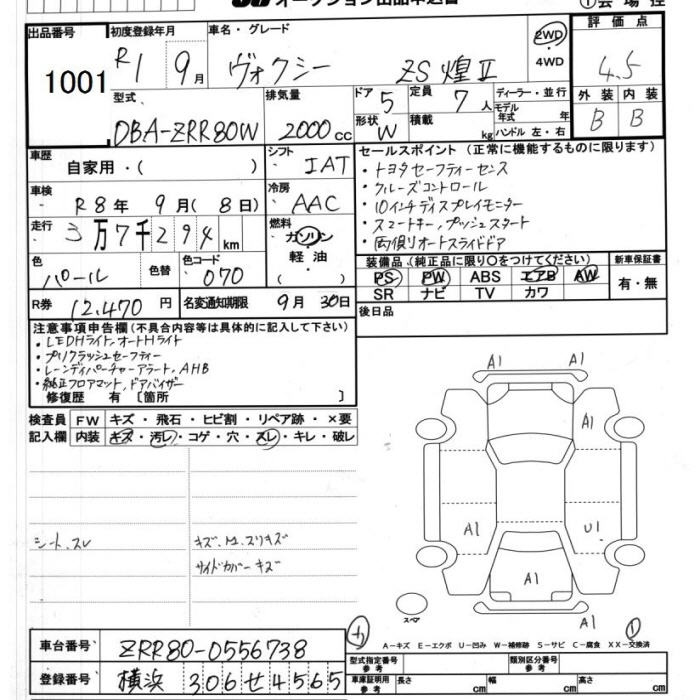 オークション出品申込書
①会場控
出品番号
1001
初度登録年月
R1 9月
車名・グレード
ヴォクシー ZS 煌Ⅱ
2WD
・
4WD
評価点
4.5
型式
DBA-ZRR80W
排気量
2000cc
ドア
5
形状
W
定員
7人
積載
kg
ディーラー・並行
モデル
年式 年
ハンドル 左・右
外装 内装
B B
車歴
自家用・( )
シフト
IAT
車検
R8年 9月(8日)
冷房
AAC
走行
3万7千294km
燃料
ガソリン
軽油
( )
色
パール
色替
色コード
070
R券
12,470円
名変通知期限 9月30日
セールスポイント(正常に機能するものに限ります)
・トヨタセーフティーセンス
・クルーズコントロール
・10インチディスプレイモニター
・スマートキー,プッシュスタート
・両側オートスライドドア
装備品(純正品に限り○をつけてください)
PS PW ABS エアB AW
SR ナビ TV カワ
新車保証書
有・無
後日品
注意事項申告欄(不具合内容等は具体的に記入して下さい)
・LEDHライト,オートHライト
・プリクラッシュセーフティー
・レーンディパーチャーアラート,AHB
・純正フロアマット,ドアバイザー
修復歴 有[箇所 ]
検査員
記入欄
FW キズ・飛石・ヒビ割・リペア跡・×要
内装 キズ・汚レ・コゲ・穴・スレ・キレ・破レ
シート,スレ
キズ、凹、スリキズ
サイドカバーキズ
A1 A1
A1
A1 U1
A1
A1
スペア
A−キズ E−エクボ U−凹み W−補修跡 S−サビ C−腐食 XX−交換済
車台番号 ZRR80-0556738
登録番号 横浜 306せ4565
型式指定番号
参考
類別区分番号
参考
車庫証明用
参考
長さ cm 幅 cm 高さ cm